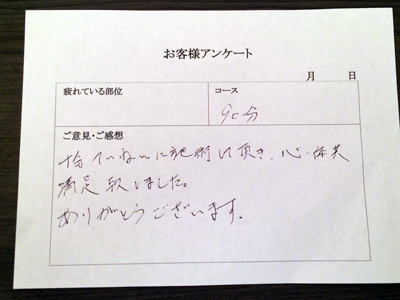 お客様アンケート
月 日
疲れている部位
コース
90分
ご意見・ご感想
十分ていねいに施術して頂き、心・体共
満足致しました。
ありがとうございます。